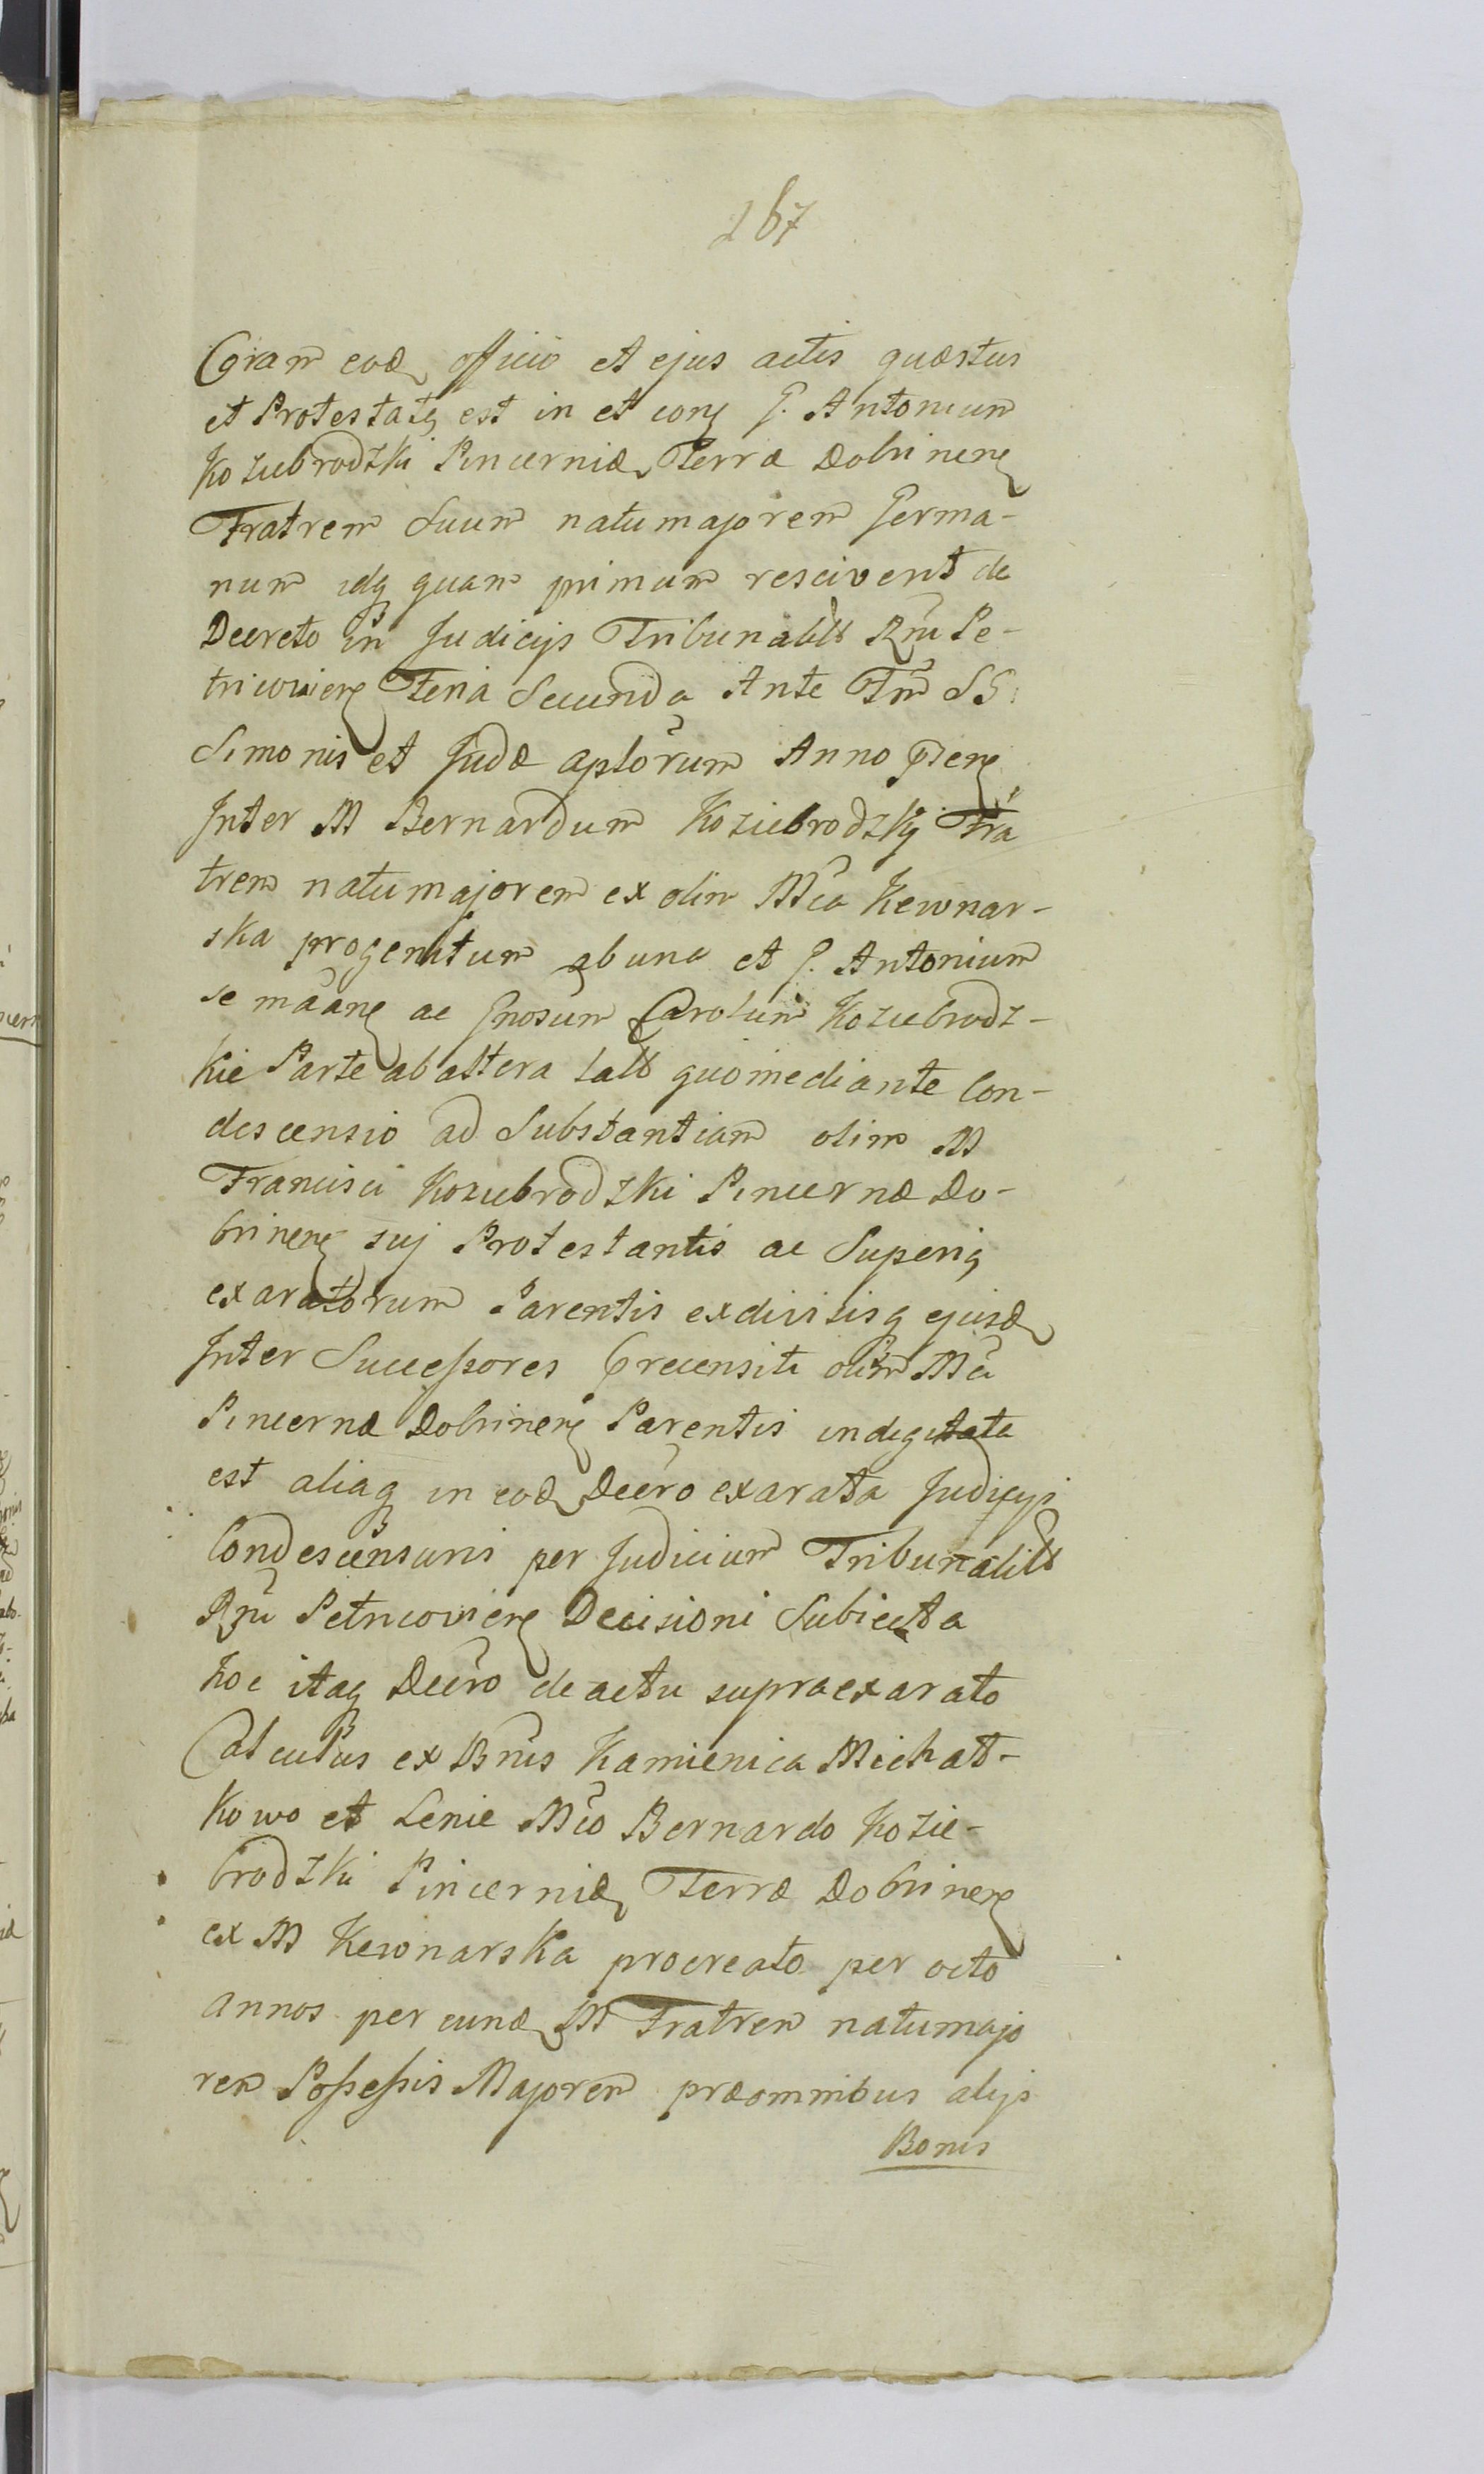 167
Coram eod officio et ejus actis quæstus
et Protestatq est in et conq G. Antonium
Koziebrodzki Pincernid Terræ Dobrinenẽ
Fratrem Suum natu majorem Germa-
num idq quam primum resciverit de
Decreto in Judicijs Tribunalib Rñi Pe-
tricovienẽ Feria Secunda Ante Fm SS.
Simonis et Judæ aplorum Anno
Inter M Bernardum Koziebrodzkÿ Fra
trem natu majorem ex olim Mca Kewnar-
ska progenitum ab una et G. Antonium
se ac Gnosum Carolum Koziebrodz-
kie Parte ab altera lato quo mediante Con-
descensio ad Substantiam olim M
Francisci Koziebrodzki Pincernæ Do-
brinenẽ suj Protestantis ac Superiq
exaratorum Parentis ex divisisq ejusd
Inter Successores recensiti olim Mci
Pincernæ Dobrinenẽ Parentis indigitata
est aliaq in eod Decro exarata Judicijs
Condescensuris per Judicium Tribunalib
Rñi Petricovienẽ Decisioni Subiecta
hoc itaq Decro de actu supra exarato
Calculus ex Bnis Kamienica Michał-
kowo et Lenie Mco Bernardo Kozie-
brodzki Pincernid Terræ Dobrinenẽ
ex M Kewnarska procreato per octo
annos per eund M Fratrem natu majo
rem Possessis Majorem præ omnibus alijs
Bonis